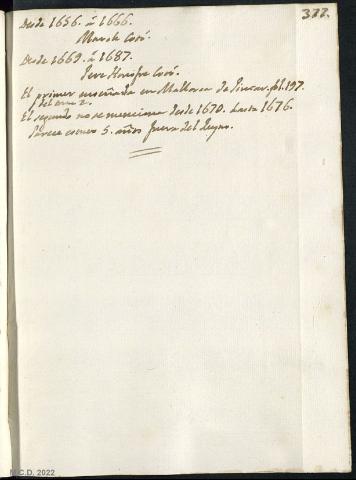 377.
Desde 1656. á 1666.
March Coró.
Desde 1669. á 1687.
Pere Honofre Coró.
El primer enseñaba en Mallorca de Pintar. fol. 197.
del
2.
El segundo no se menciona desde 1670. hasta 1676.
Parece estuvo 5. años fuera del Reyno.
M.C.D. 2022